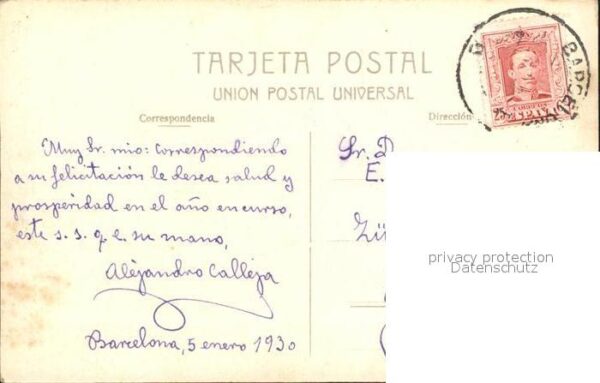 TARJETA POSTAL
UNION POSTAL UNIVERSAL
Correspondencia
Dirección
BARCELONA
Muy Sr. mio: Correspondiendo
a su felicitación le desea salud y
prosperidad en el año en curso,
este s. s. q. e. su mano,
Alejandro Calleja
Barcelona, 5 enero 1930
Sr. D
E.
Zü
privacy protection
Datenschutz